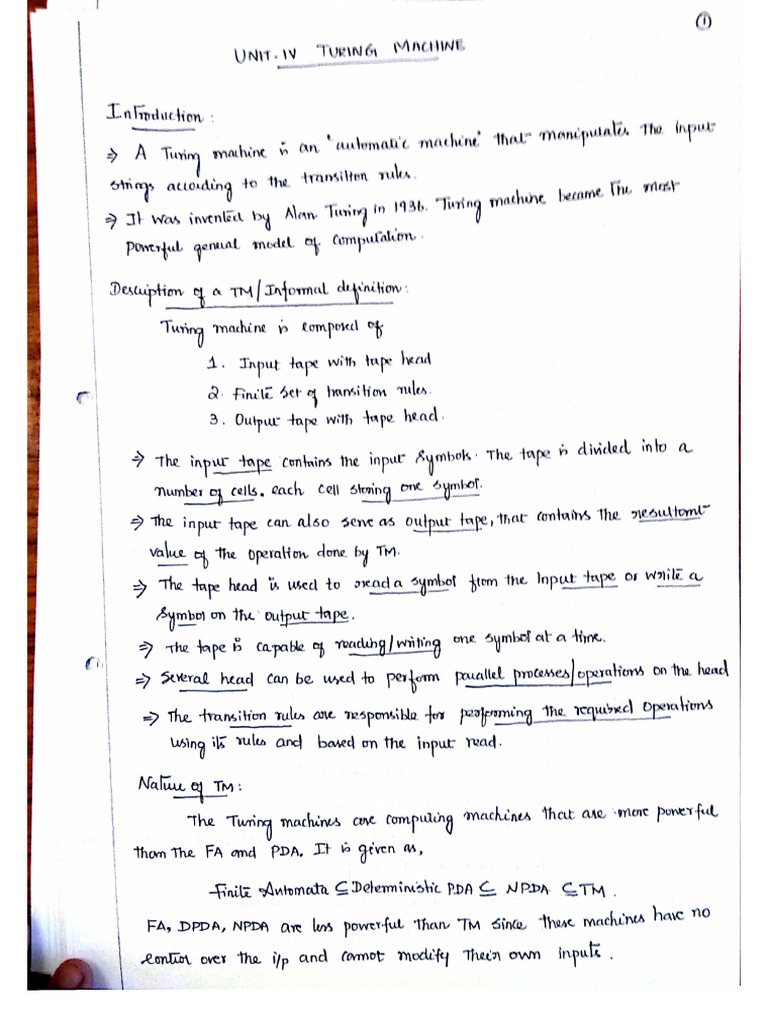 ①
UNIT-IV TURING MACHINE
Introduction :
⇒ A Turing machine is an "automatic machine" that manipulates the input
strings according to the transition rules.
⇒ It was invented by Alan Turing in 1936. Turing machine became the most
powerful general model of computation.
Description of a TM/Informal definition:
Turing machine is composed of
1. Input tape with tape head
2. Finite set of transition rules.
3. Output tape with tape head.
⇒ The input tape contains the input symbols. The tape is divided into a
number of cells. each cell storing one symbol.
⇒ The input tape can also serve as output tape, that contains the resultant
value of the operation done by TM.
⇒ The tape head is used to read a symbol from the Input tape or write a
symbol on the output tape.
⇒ The tape is capable of reading/writing one symbol at a time.
⇒ Several head can be used to perform parallel processes/operations on the head
⇒ The transition rules are responsible for performing the required operations
using its rules and based on the input read.
Nature of TM:
The Turing machines are computing machines that are more powerful
than the FA and PDA. It is given as,
Finite Automata ⊆ Deterministic PDA ⊆ NPDA ⊆ TM.
FA, DPDA, NPDA are less powerful than TM since these machines have no
control over the i/p and cannot modify their own inputs.